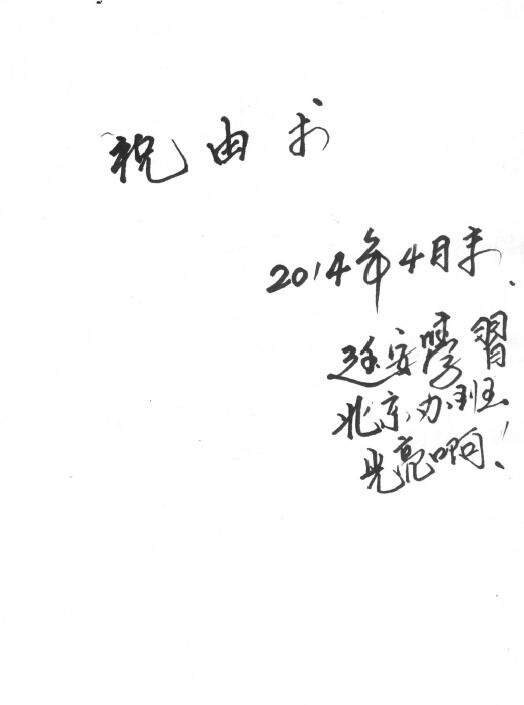 祝由术
2014年4月末.
延安学習
北京办班.
光亮啊!